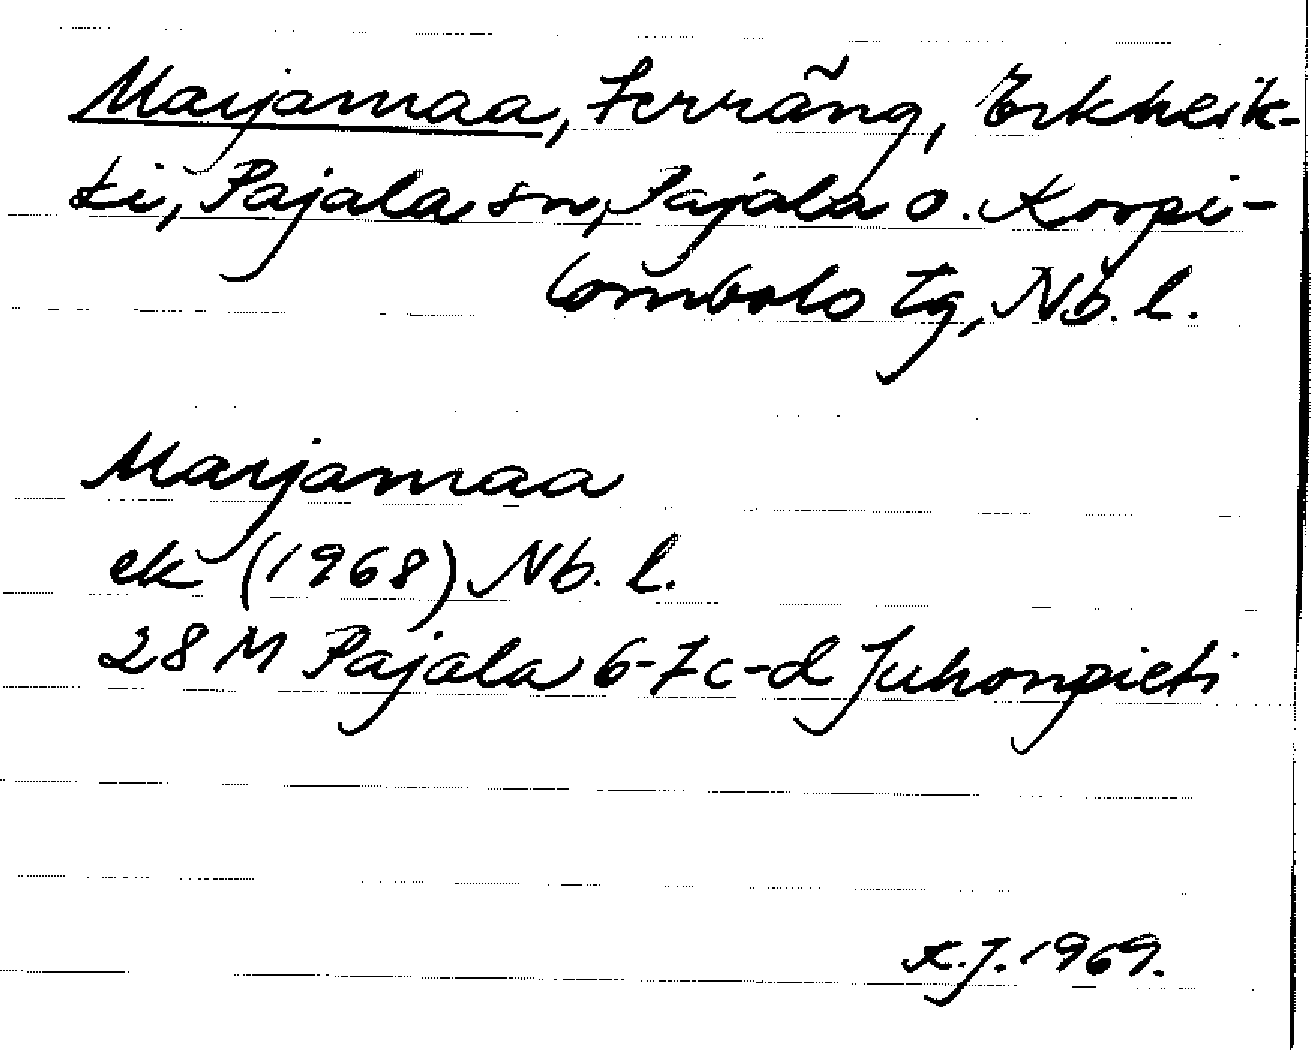 Marjamaa, Terräng, Erkheik-
ki, Pajala sn, Pajala o. Korpi-
lombolo tg, Nb. l.
Marjamaa
ek (1968) Nb. l.
28 M Pajala 6-7 c-d Juhonpieti
K.J. 1969.